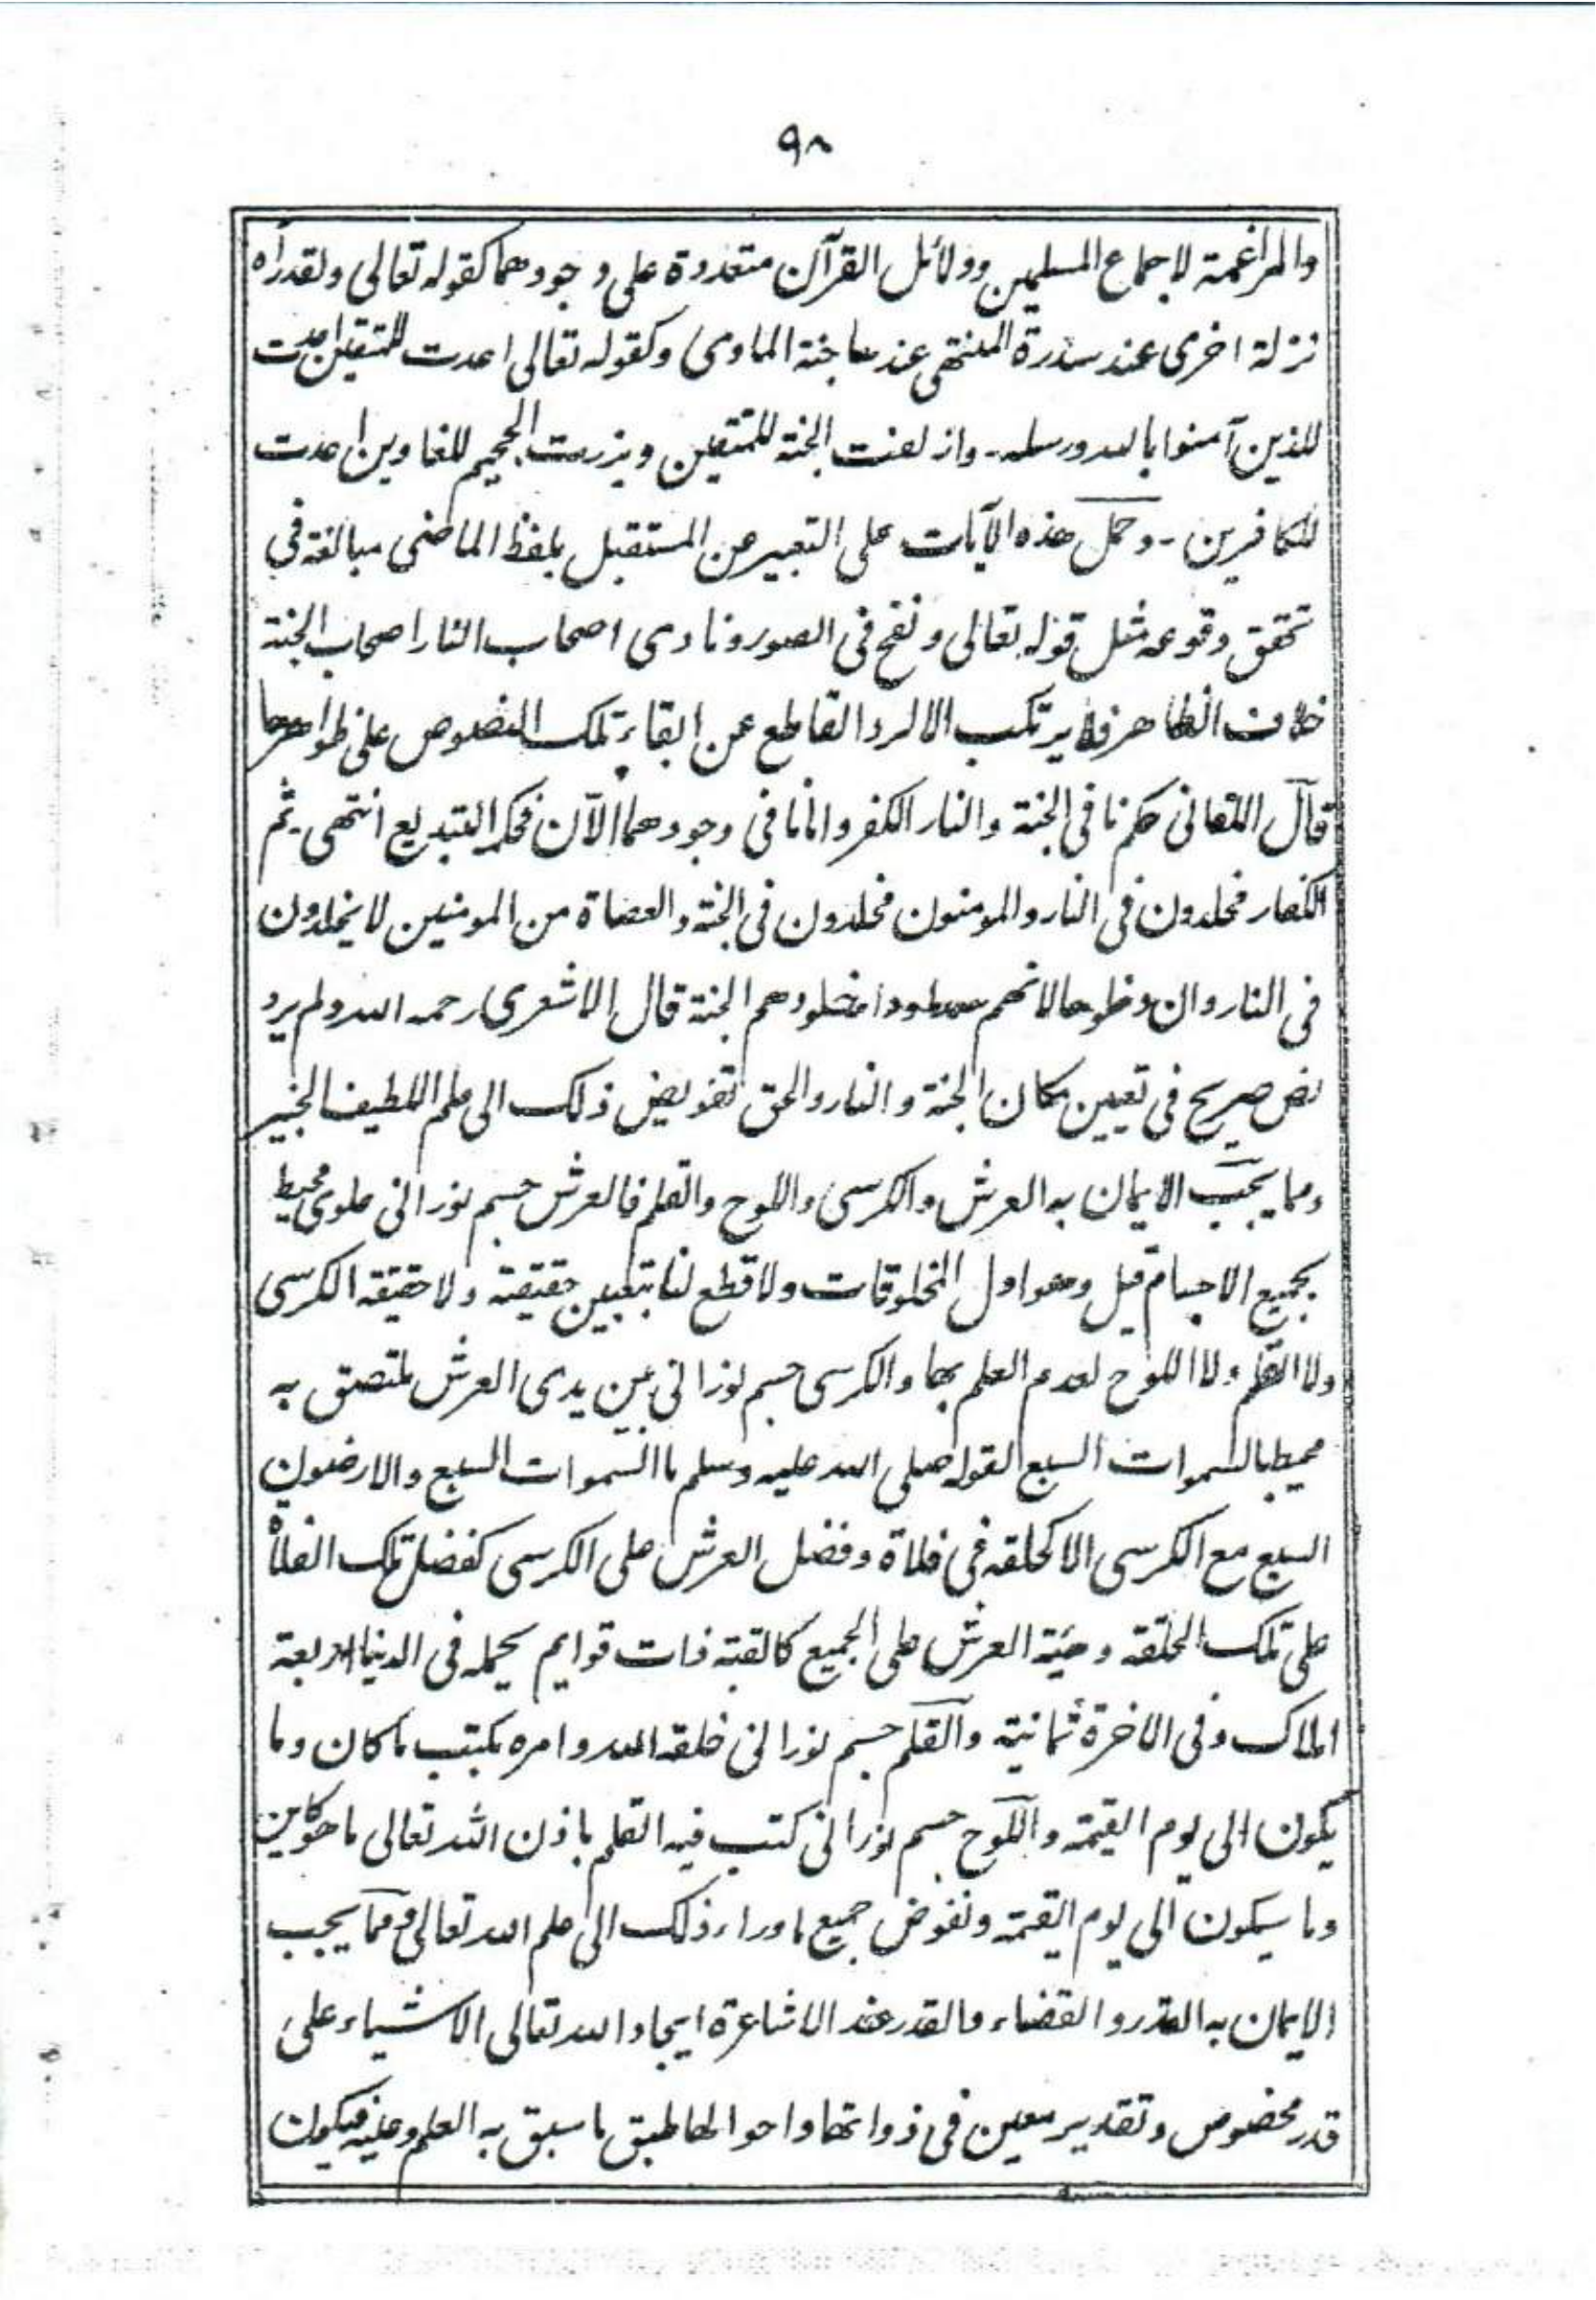 ٩٨
والمراغمة لاجماع المسلمين ودلائل القرآن متعددة على وجودهما كقوله تعالى ولقد رآه
نزلة اخرى عند سدرة المنتهى عندها جنة الماوى وكقوله تعالى اعدت للمتقين اعدت
للذين آمنوا بالله ورسله ـ وازلفت الجنة للمتقين وبرزت الجحيم للغاوين اعدت
للكافرين ـ وحمل هذه الآيات على التعبير عن المستقبل بلفظ الماضى مبالغة في
تحقق وقوعه مثل قوله تعالى ونفخ فى الصور ونادى اصحاب النار اصحاب الجنة
خلاف الظاهر فلا يرتكب الا لرد القاطع عن ابقاء تلك النصوص على ظواهرها
قال اللقانى حكم نافى الجنة والنار الكفر واما نافى وجودهما الآن فحكمه التبديع انتهى ـ ثم
الكفار مخلدون في النار والمومنون مخلدون فى الجنة والعصاة من المومنين لا يخلدون
فى النار وان دخلوها لانهم خلودهم الجنة قال الاشعرى رحمه الله ولم يرد
نص صريح فى تعيين مكان الجنة والنار والحق تفويض ذلك الى علم اللطيف الخبير
ومما يجب الايمان به العرش والكرسى واللوح والقلم فالعرش جسم نورانى علوى محيط
بجميع الاجسام قيل وهو اول المخلوقات ولا قطع لنا بتعيين حقيقته ولا حقيقة الكرسى
ولا القلم ولا اللوح لعدم العلم بها والكرسى جسم نورانى بين يدى العرش ملتصق به
محيط بالسموات السبع لقوله صلى الله عليه وسلم ما السموات السبع والارضون
السبع مع الكرسى الا كحلقه فى فلاة وفضل العرش على الكرسى كفضل تلك الفلاة
على تلك الحلقه وهيئة العرش على الجميع كالقبة ذات قوايم يحمله فى الدنيا اربعة
املاك وفى الاخرة ثمانية والقلم جسم نورانى خلقه الله وامره بكتب ما كان وما
يكون الى يوم القيمة واللوح جسم نورانى كتب فيه القلم باذن الله تعالى ما هو كاين
وما سيكون الى يوم القيمة ونفوض جميع ما وراء ذلك الى علم الله تعالى ومما يجب
الايمان به القدر والقضاء فالقدر عند الاشاعرة ايجاد الله تعالى الاشياء على
قدر مخصوص وتقدير معين فى ذواتها واحوالها طبق ما سبق به العلم وعليه فيكون